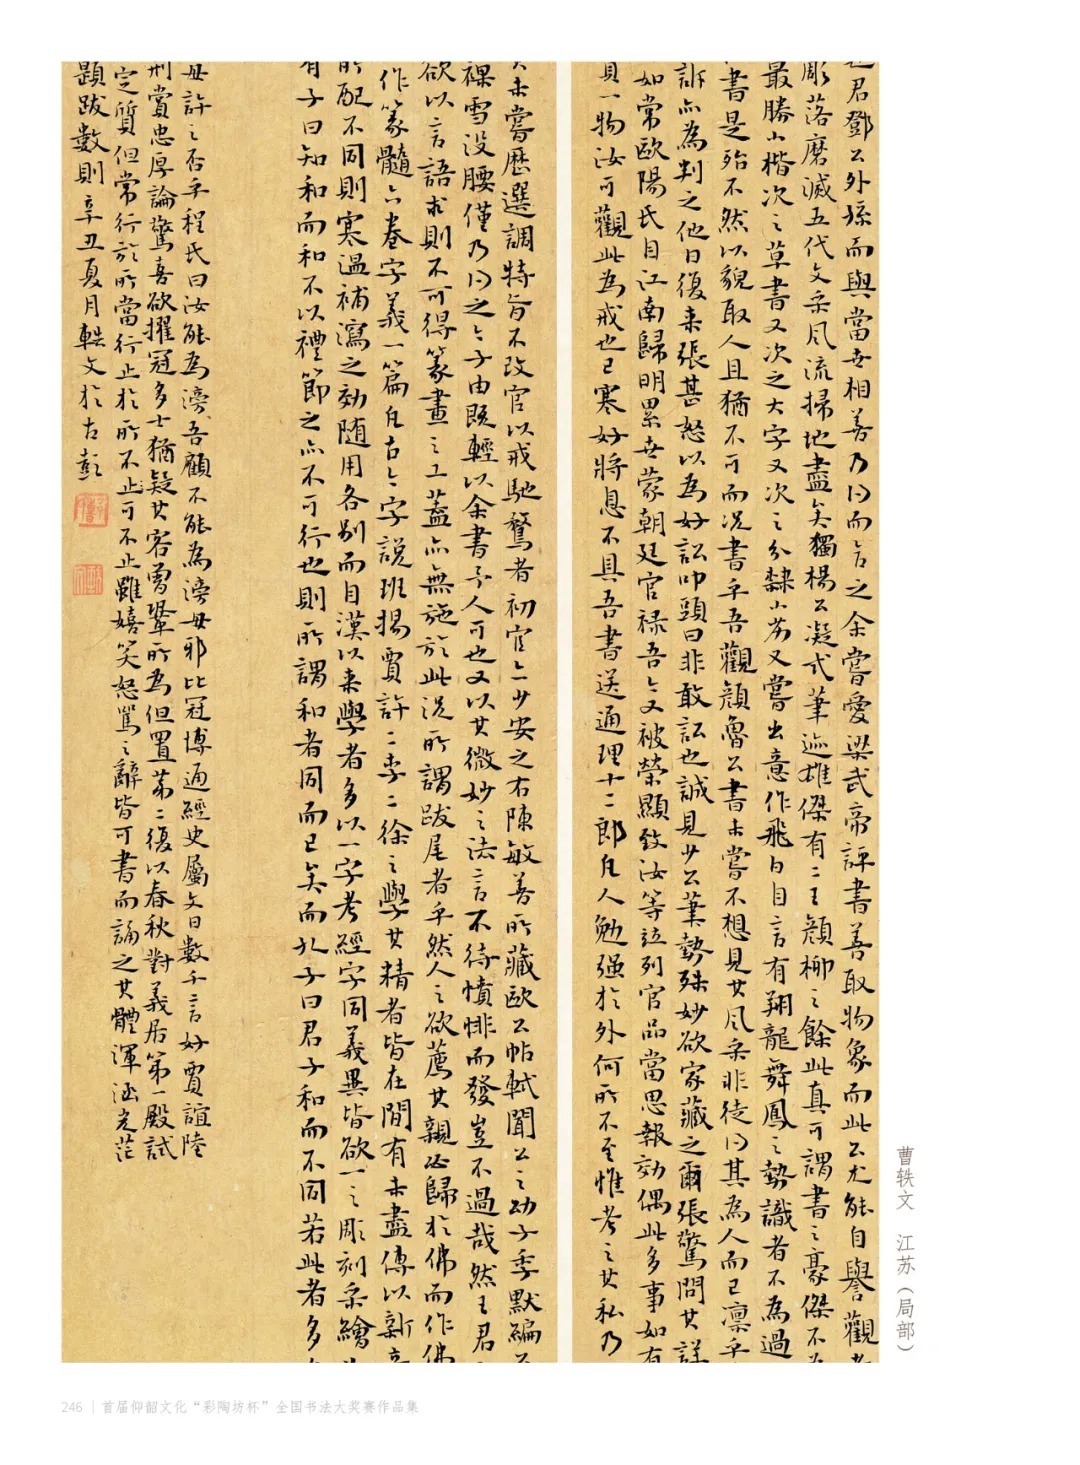 君鄧公外孫而與當世相善乃曰而言之余嘗愛梁武帝評書善取物象而此公尤能自譽觀
彫落磨滅五代文采風流掃地盡矣獨楊公凝式筆迹雄傑有二王顏柳之餘此真可謂書之豪傑不
最勝小楷次之草書又次之大字又次之分隸小劣又嘗出意作飛白自言有翔龍舞鳳之勢識者不為過
書是殆不然以貌取人且猶不可而況書乎吾觀顏魯公書未嘗不想見其風采非徒曰其為人而已凜乎
訴亦為判之他日復来張甚怒以為好訟叩頭曰非敢訟也誠見少公筆勢殊妙欲家藏之爾張驚問其詳
如常歐陽氏自江南歸明累世蒙朝廷官禄吾今又被榮顯致汝等竝列官品當思報効偶此多事如有
一物汝可觀此為戒也已寒好將息不具吾書送通理十二郎凡人勉强於外何所不至惟考之其私乃
未嘗歷選調特旨不改官以戒馳騖者初官六少安之右陳敏善所藏歐公帖軾聞公之幼子季默編
裸雪没腰僅乃曰之今子由既輕以余書予人可也又以其微妙之法言不待憤悱而發豈不過哉然王君
欲以言語求則不可得篆畫之工蓋亦無施於此況所謂跋尾者乎然人之欲薦其親必歸於佛而作佛
作篆髓六卷字義一篇凡古今字說班揚賈許二李二徐之學其精者皆在間有未盡傳以新
所配不同則寒温補瀉之効随用各别而自漢以来學者多以一字考經字同義異皆欲一之彫刻采繪
有子曰知和而和不以禮節之亦不可行也則所謂和者同而已矣而孔子曰君子和而不同若此者多
母許之否乎程氏曰汝能為滂吾顧不能為滂母邪比冠博通經史屬文日數千言好賈誼陸
刑賞忠厚論驚喜欲擢冠多士猶疑其客曾鞏所為但置第二復以春秋對義居第一殿試
定質但常行於所當行止於所不止可不止雖嬉笑怒罵之辭皆可書而誦之其體渾涵光茫
題跋數則辛丑夏月軼文於古彭
曹轶文 江苏（局部）
246 | 首届仰韶文化“彩陶坊杯”全国书法大奖赛作品集